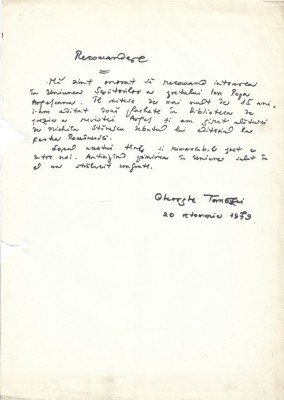 Recomandare
Mă simt onorat să recomand intrarea
în Uniunea Scriitorilor a poetului Ion Popa
Argeșanu. Îl citesc de mai mult de 15 ani,
i-am editat două plachete în Biblioteca de
poezie a revistei Argeș și am girat alături
de Nichita Stănescu debutul lui editorial la
Cartea Românească.
Locul acestui și remarcabil poet e
între noi. Anticipînd primirea în Uniune salut în
el un strălucit confrate.
Gheorghe Tomozei
20 1979